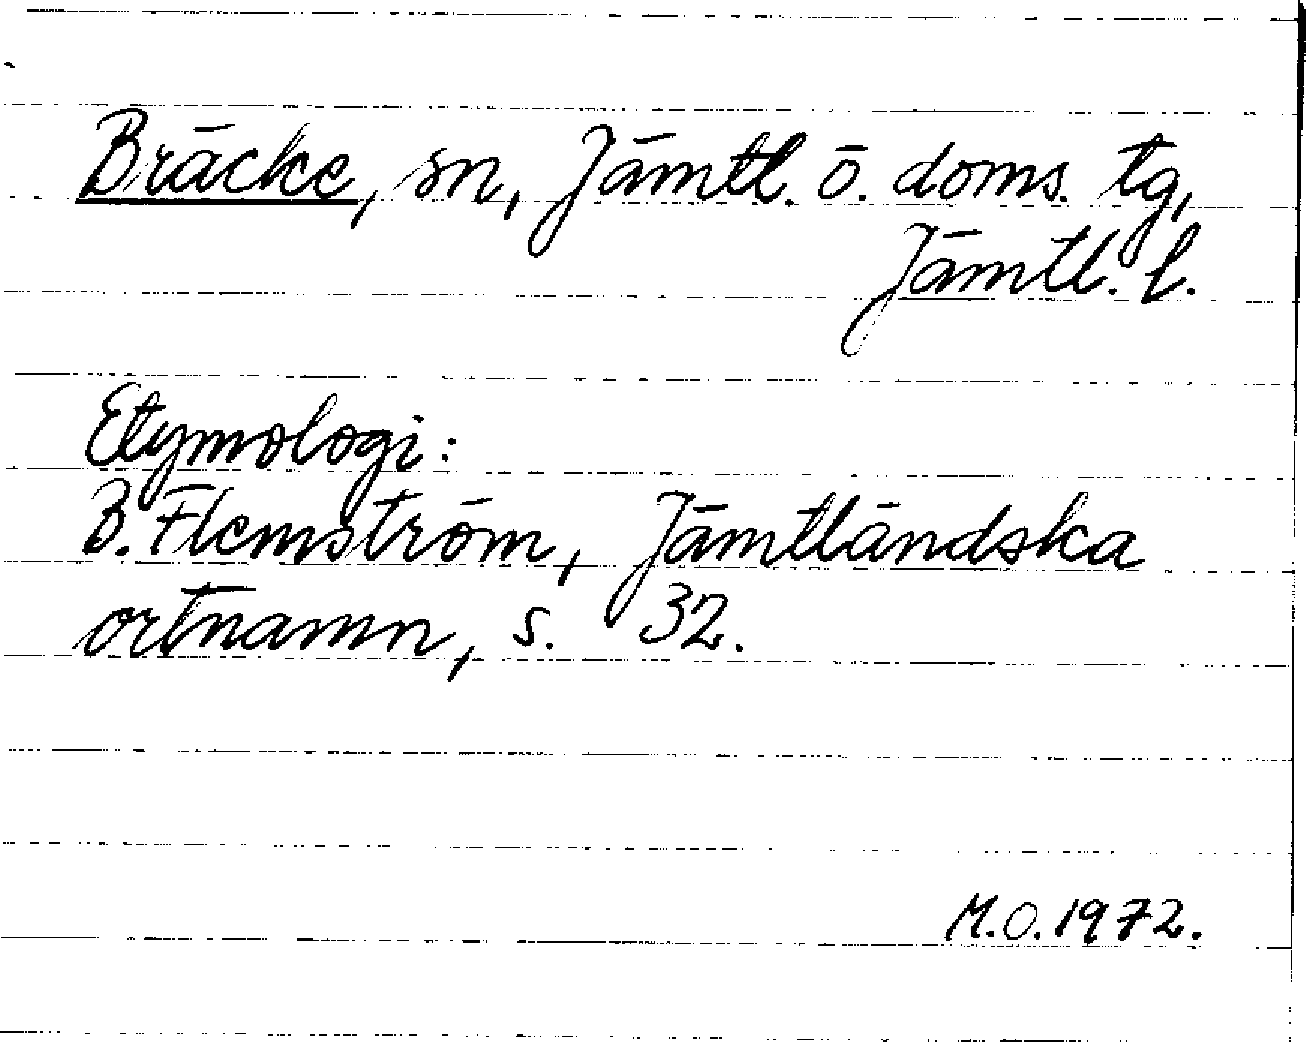 Bräcke, sn, Jämtl. ö. doms. tg,
Jämtl. l.
Etymologi:
B. Flemström, Jämtländska
ortnamn, s. 32.
M.O. 1972.